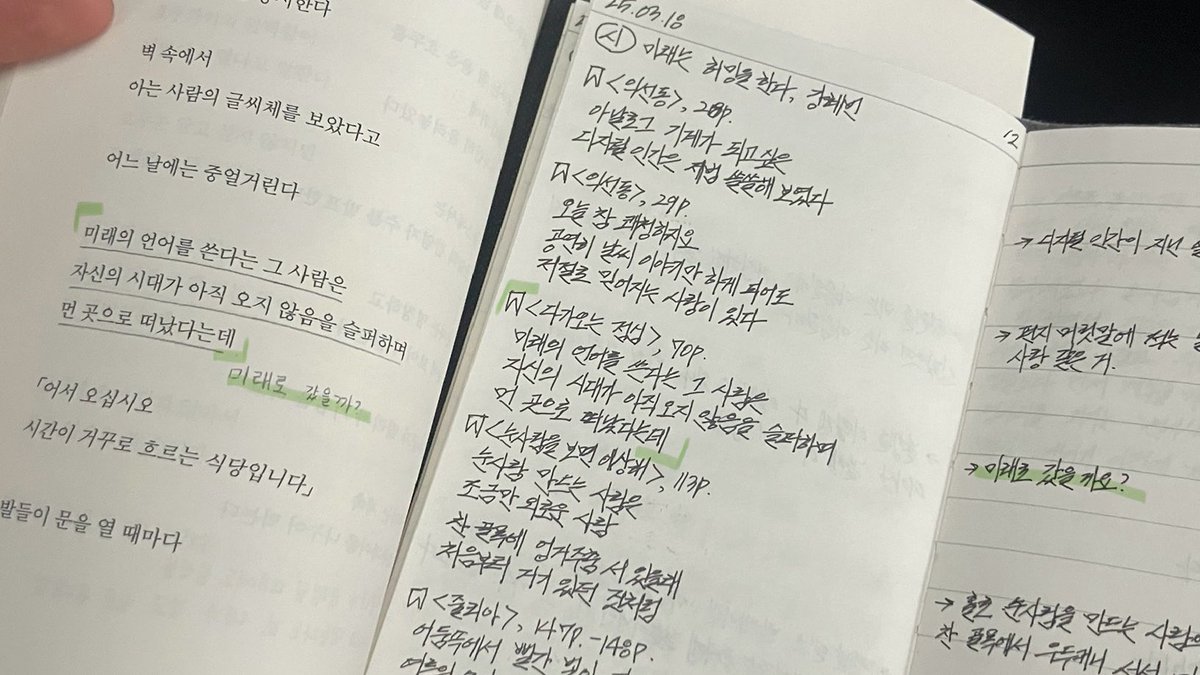 벽 속에서
아는 사람의 글씨체를 보았다고
어느 날에는 중얼거린다
미래의 언어를 쓴다는 그 사람은
자신의 시대가 아직 오지 않음을 슬퍼하며
먼 곳으로 떠났다는데
미래로 갔을까?
「어서 오십시오
시간이 거꾸로 흐르는 식당입니다」
발들이 문을 열 때마다
25.03.18
시 미래는 허밍을 한다, 강혜빈
<의선동>, 28p.
아날로그 기계가 되고 싶은
디지털 인간은 제법 쓸쓸해 보였다
<의선동>, 29p.
오늘 참 쾌청하지요
공연히 날씨 이야기만 하게 되어도
저절로 믿어지는 사랑이 있다
<다가오는 점심>, 70p.
미래의 언어를 쓴다는 그 사람은
자신의 시대가 아직 오지 않음을 슬퍼하며
먼 곳으로 떠났다는데
<눈사람을 보면 이상해>, 113p.
눈사람 만드는 사람은
조금만 외로운 사람
찬 골목에 엉거주춤 서 있을래
처음부터 거기 있던 것처럼
<줄리아>, 147p.-148p.
어둠뚝에서 빨간
12
→ 디지털 인간이 지닌
→ 편지 머릿말에 적는
사랑 같은 거.
→ 미래로 갔을까요?
→ 홀로 눈사람을 만드는 사람
찬 골목에서 우두커니 서서